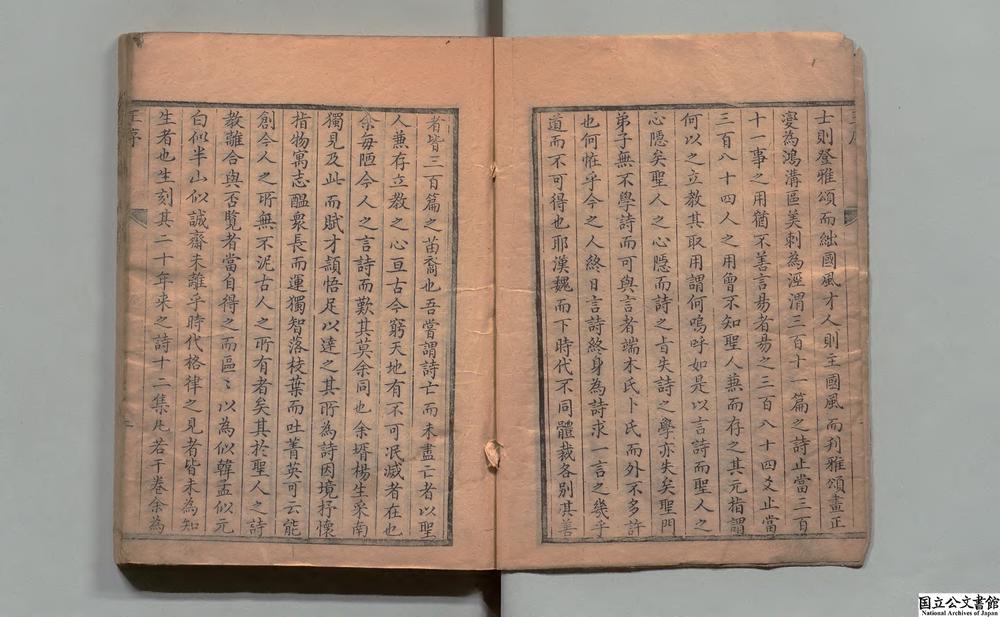 士則登雅頌而絀國風才人則主國風而刋雅頌畫正
變為鴻溝區美刺為涇渭三百十一篇之詩止當三百
十一事之用猶不善言易者易之三百八十四爻止當
三百八十四人之用曾不知聖人蕪而存之其元指謂
何以之立教其取用謂何嗚呼如是以言詩而聖人之
心隠矣聖人之心隠而詩之㫖失詩之學亦失矣聖門
弟子無不學詩而可與言者端木氏卜氏而外不多許
也何恠乎今之人終日言詩終身為詩求一言之㡬乎
道而不可得也耶漢魏而下時代不同體裁各别淇善
者皆三百篇之苗裔也吾嘗謂詩亡而未盡亡者以聖
人蕪存立教之心亘古今窮天地有不可泯滅者在也
余每陋今人之言詩而歎其莫余同也余壻楊生采南
獨見及此而賦才頴悟足以達之其所為詩因境抒懷
指物寓志醞衆長而運獨智落枝葉而吐菁英可云能
創今人之所無不泥古人之所有者矣其於聖人之詩
教離合與否覽者當自得之而區〻以為似韓孟似元
白似半山似誠齋未離乎時代格律之見者皆未為知
生者也生刻其二十年來之詩十二集凡若干卷余為
王序
二
国立公文書館
National Archives of Japan